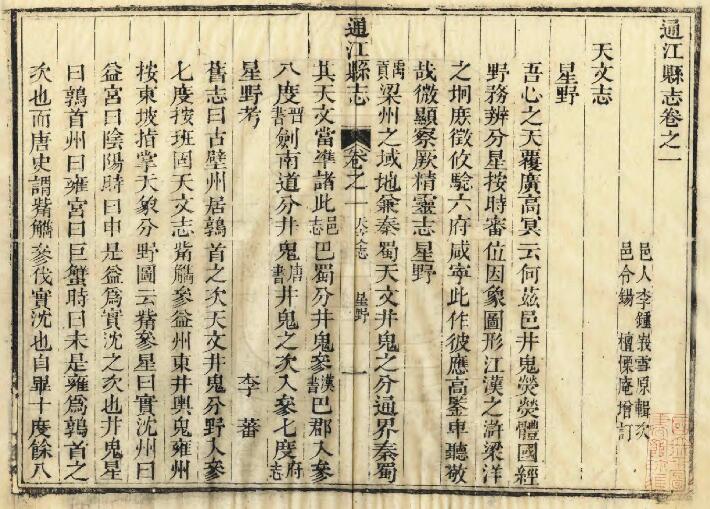 通江縣志卷之一
邑人李鍾峩雪原輯次
邑令錫檀傈庵增訂
天文志
星野
吾心之天覆廣高冥云何茲邑井鬼熒熒體國經
野務辨分星按時審位因象圖形江漢之滸梁洋
之坰庶徵攸驗六府咸寧此作彼應高鑒卑聽敬
哉微顯察厥精靈志星野
禹貢梁州之域地兼秦蜀天文井鬼之分通界秦蜀
其天文當準諸此邑志巴蜀分井鬼參漢書巴郡入參
八度晉書劍南道分井鬼唐書井鬼之次入參七度府志
星野考 李蕃
舊志曰古壁州居鶉首之次天文井鬼分野入參
七度按班固天文志觜觿參益州東井輿鬼雍州
按東坡指掌天象分野圖云觜參星曰實沈州曰
益宮曰陰陽時曰申是益爲實沈之次也井鬼星
曰鶉首州曰雍宮曰巨蟹時曰未是雍爲鶉首之
次也而唐史謂觜觿參伐實沈也自畢十度餘八
通江縣志 卷之一 天文志 星野 一